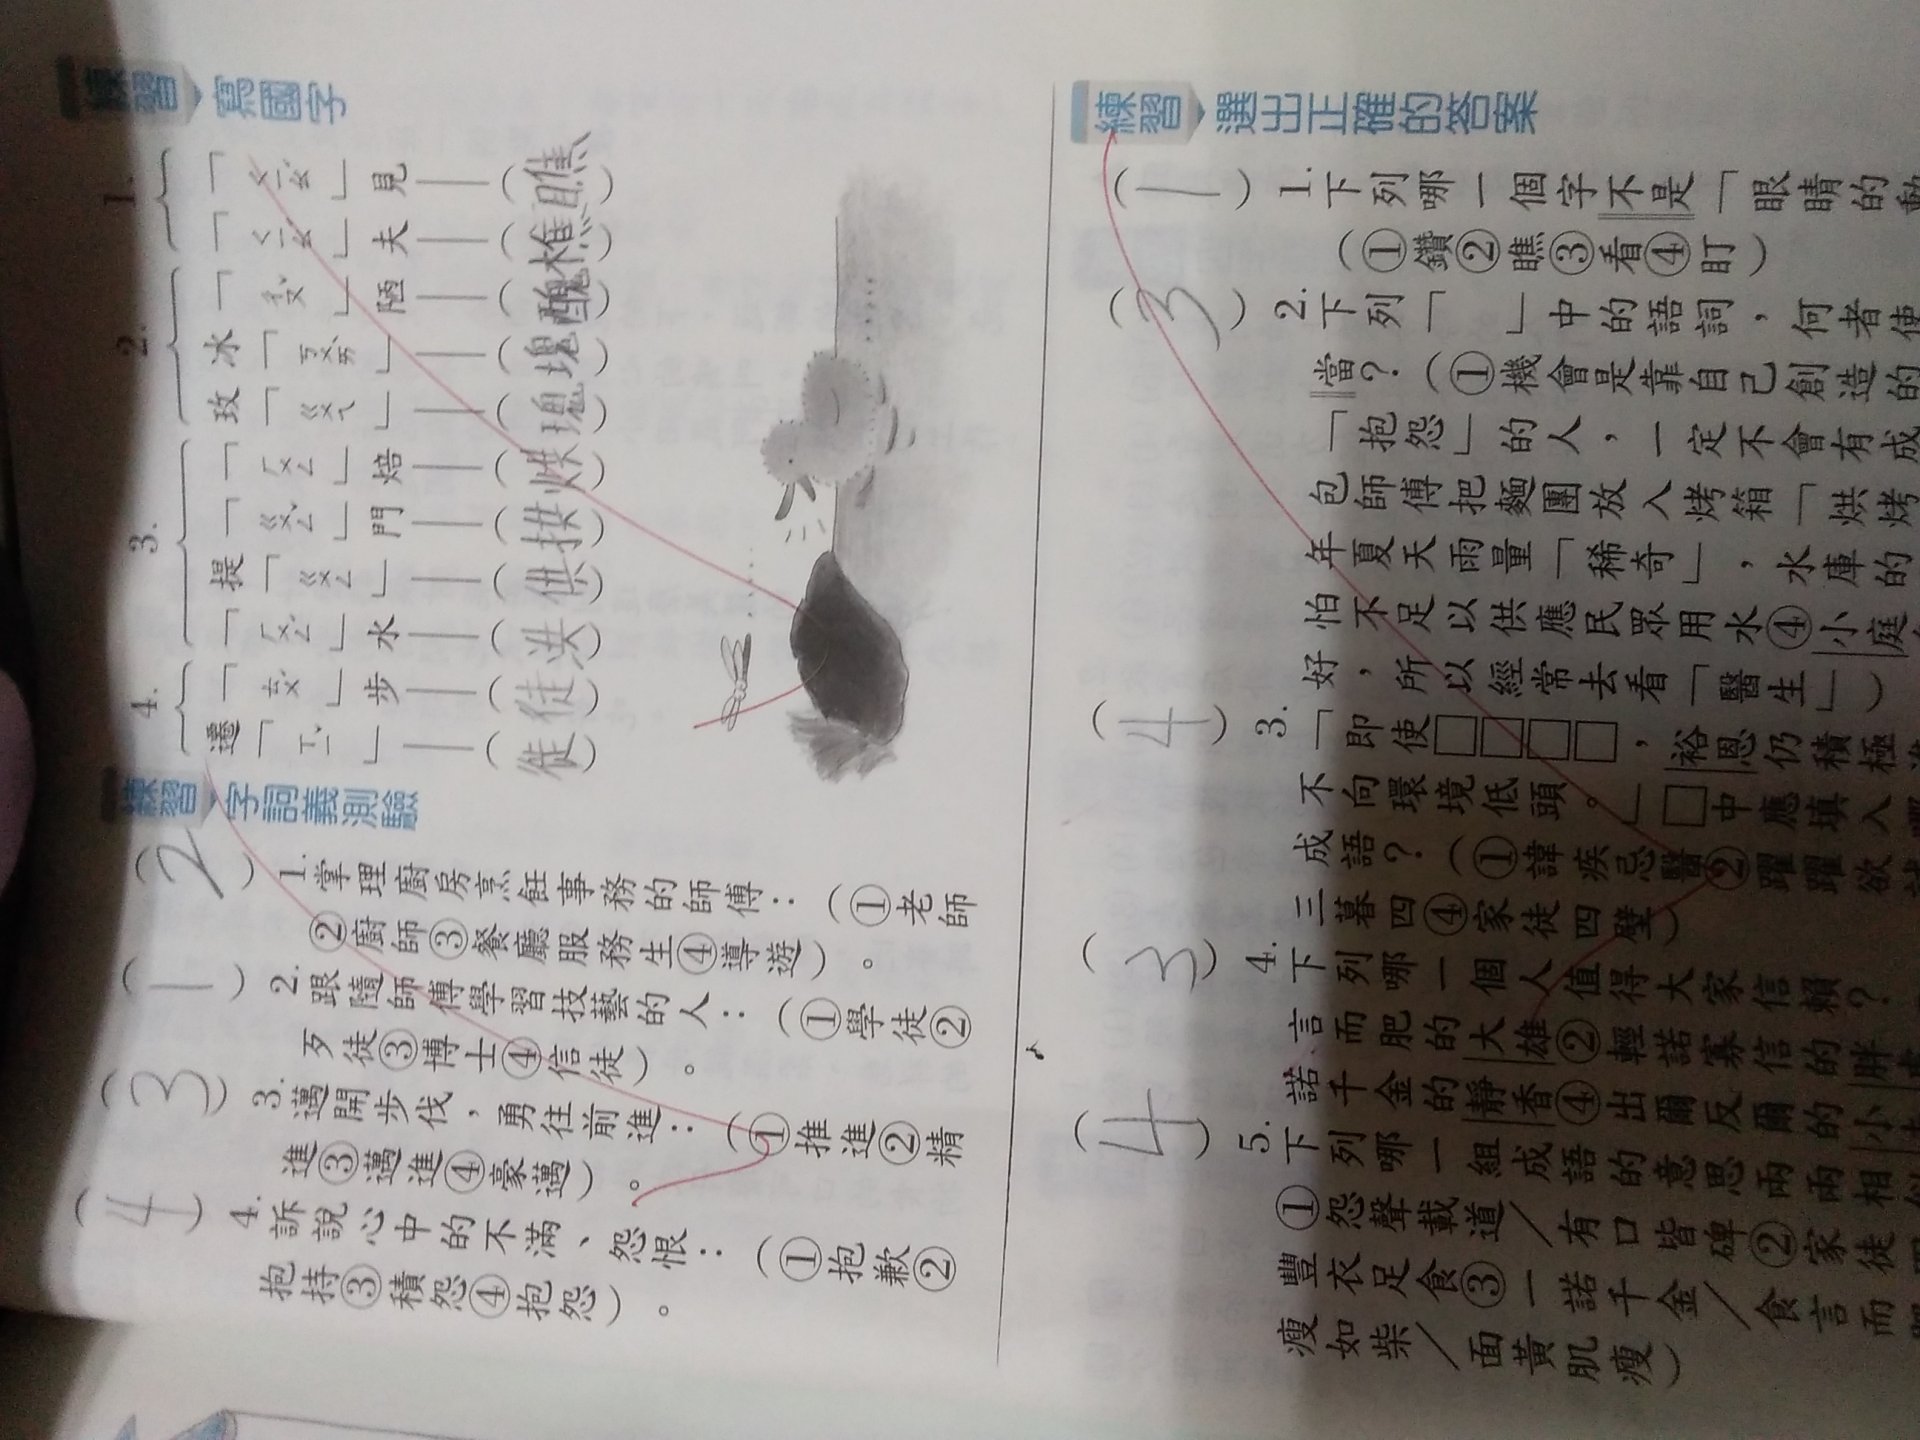 練習 寫國字
1.
「ㄑㄧㄠˊ」見
(瞧)
「ㄑㄧㄠˊ」夫
(樵)
2.
「ㄔㄡˇ」陋
(醜)
冰「ㄎㄨㄞˋ」
(塊)
玫「ㄍㄨㄟ」
(瑰)
3.
「ㄏㄨㄥ」焙
(烘)
「ㄍㄨㄥˇ」門
(拱)
提「ㄍㄨㄥ」
(供)
「ㄏㄨㄥˊ」水
(洪)
4.
「ㄊㄨˊ」步
(徒)
遷「ㄒㄧˇ」
(徙)
練習 字詞義測驗
(2) 1.掌理廚房烹飪事務的師傅:(①老師
②廚師③餐廳服務生④導遊)。
(1) 2.跟隨師傅學習技藝的人:(①學徒②
歹徒③博士④信徒)。
(3) 3.邁開步伐,勇往前進:(①推進②精
進③邁進④豪邁)。
(4) 4.訴說心中的不滿、怨恨:(①抱歉②
抱持③積怨④抱怨)。
練習 選出正確的答案
(1) 1.下列哪一個字不是「眼睛的動
(①鑽②瞧③看④盯)
(3) 2.下列「 」中的語詞,何者使
當?(①機會是靠自己創造的
「抱怨」的人,一定不會有成
包師傅把麵團放入烤箱「烘烤
年夏天雨量「稀奇」,水庫的
怕不足以供應民眾用水④小庭
好,所以經常去看「醫生」)
(4) 3.「即使□□□□,裕恩仍積極
不向環境低頭。」□中應填入
成語?(①諱疾忌醫②躍躍欲
三暮四④家徒四壁)
(3) 4.下列哪一個人值得大家信賴?
言而肥的大雄②輕諾寡信的胖
諾千金的靜香④出爾反爾的小
(4) 5.下列哪一組成語的意思兩兩相
①怨聲載道/有口皆碑②家徒
豐衣足食③一諾千金/食言而
瘦如柴/面黃肌瘦)